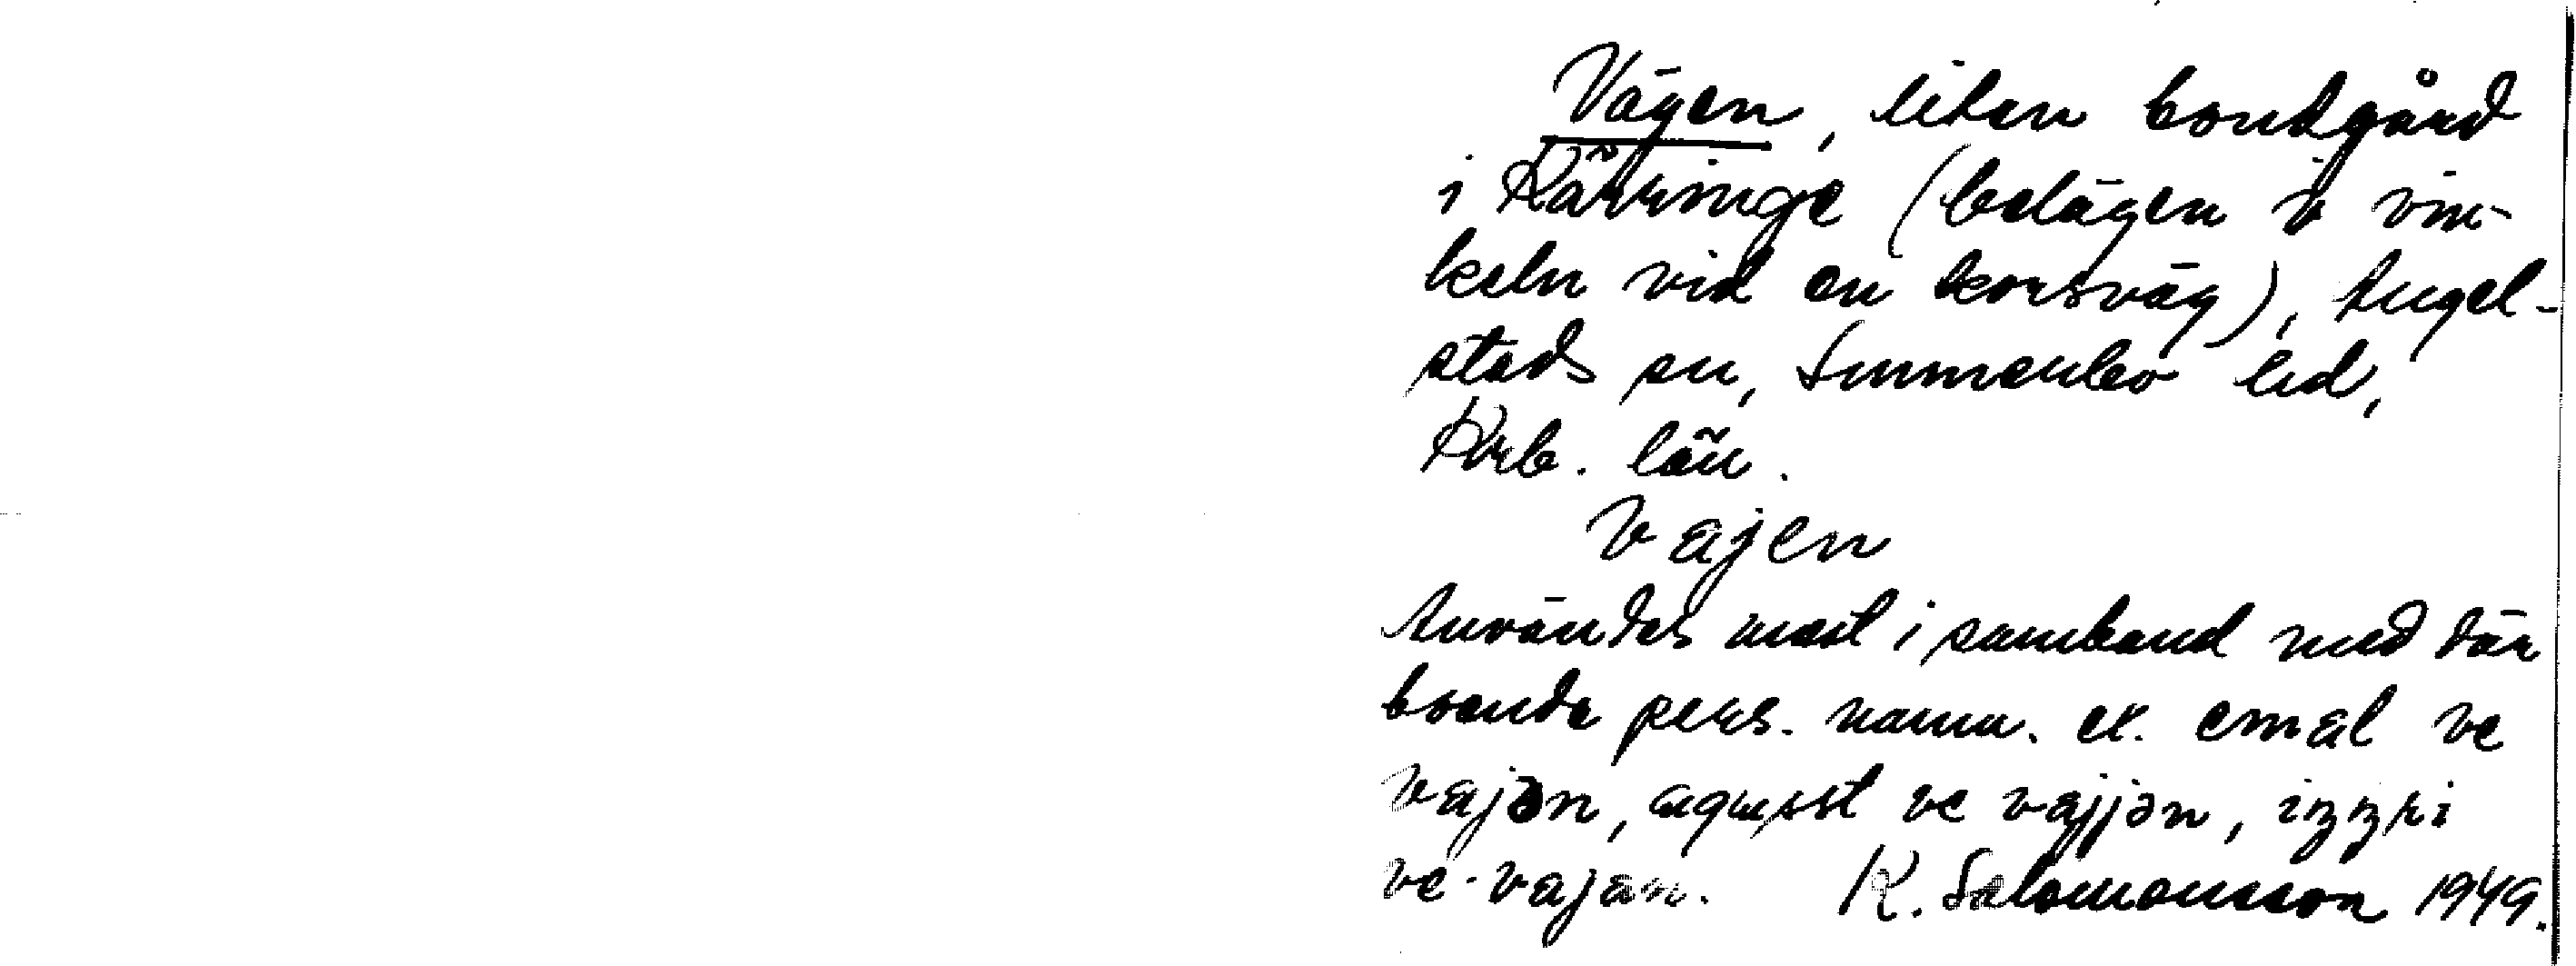 Vägen, liten bondgård
i Kärringe (belägen i vin-
keln vid en korsväg), Angel-
stads sn, Sunnerbo hd,
Krb. län.
vajen
Användes mest i samband med där
boende pers. namn. ex. emal ve
vajən, agust ve vajjən,
ve vajan. K. Salomonsson 1949.